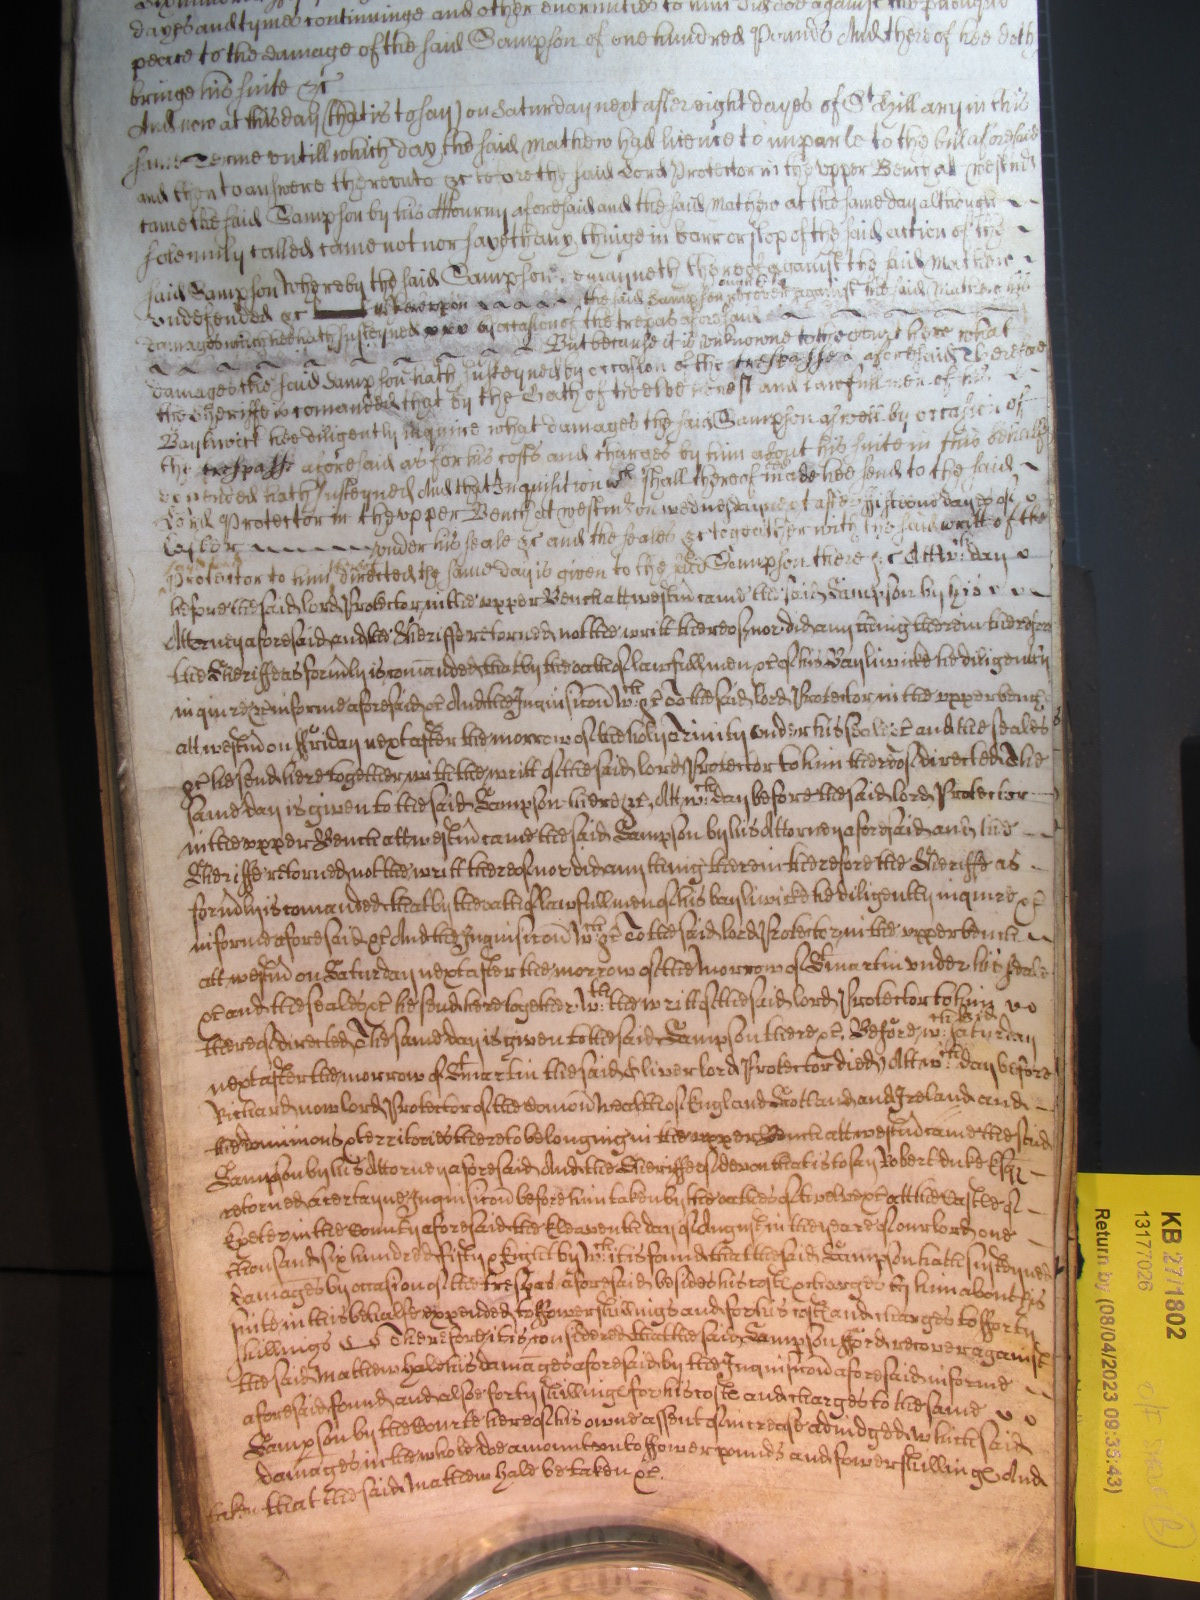 dayes and tymes continuinge and other enormities to him did doe against the publique
peace to the damage of the said Sampson of one hundred Pounds And thereof hee doth
bringe his suite &c
And now at this day (that is to say) on Saturday next after eight dayes of St Hillary in this
same Terme untill which day the said Mathew had licence to imparle to the bill aforesaid
and then to answere thereunto &c before the said Lord Protector in the upper Bench at Westm
came the said Sampson by his Attourny aforesaid and the said Mathew at the same day although
solemnly called came not nor sayeth any thinge in barr or stop of the said action of the
said Sampson Whereby the said Sampson remayneth thereof against the said Mathew
undefended &c Whereuppon the said Sampson ought to recover against the said Mathew his
damages which hee hath susteyned by occasion of the trespas aforesaid
But because it is unknowne to the Court here what
damages the said Sampson hath susteyned by occasion of the trespasse aforesaid Therefore
the Sheriffe is comanded that by the Oath of twelve honest and lawfull men of his
Baylywick hee diligently inquire what damages the said Sampson aswell by occasion of
the trespasse aforesaid as for his costs and charges by him about his suite in this behalfe
expended hath susteyned And that Inquisition wch shall thereof made hee send to the said
Lord Protector in the upper Bench at Westm on wednesday next after fifteene dayes of
Easter under his seale &c and the seales &c togeather with the said writt of the
Protector to him directed the same day is given to the said Sampson there &c Att wch day
before the said lord Protector in the upper Bench att westm came the said Sampson by his
Attorney aforesaid and the Sheriffe retorned not the writt thereof nor did any thing therein therefore
the Sheriffe as formly is comanded that by the oath of lawfull men &c of his Bayliwicke he diligently
inquire &c in forme aforesaid &c And the Inquisicon wch &c To the said lord Protector in the upper bench
att westm on ffriday next after the morrow of the holy Trinity under his seale &c and the seales
&c he send here together with the writt of the said lord Protector to him thereof directed The
same day is given to the said Sampson here &c, Att wch day before the said lord Protector
in the upper Bench att westm came the said Sampson by his Attorney aforesaid and the
Sheriffe retorned not the writt thereof nor did any thing therein therefore the Sheriffe as
formly is comanded that by the oath of lawfull men of his bayliwicke he diligently inquire &c
in forme aforesaid &c And the Inquisicon wch &c To the said lord Protector in the upper bench
att westm on Saturday next after the morrow of the morrow of St martin under his seale
&c and the seales &c he send here together wth the writt of the said lord Protector to him
thereof directed The same day is given to the said Sampson there &c. Before wch said saturday
next after the morrow of St martin the said Oliver lord Protector died Att wch day before
Richard now lord Protector of the Comon wealth of England Scotland and Ireland and
the dominions & territories thereto belonging in the upper Bench att westm came the said
Sampson by his Attorney aforesaid And the Sheriffe of devon that is to say Robert duke Esqr
retorned a certayne Inquisicon before him taken by the oathes of twelve &c att the Castle of
Exeter in the County aforesaid the Eleaventh day of August in the yeare of our lord one
thousand six hundred fifty & Eight by wch it is found that the said Sampson hath susteyned
damages by occasion of the trespas aforesaid besides his costs & charges by him about his
suite in this behalfe expended to ffower shillings and for his costs and charges to fforty
shillings Therefore it is considered that the said Sampson fford recover against
the said Mathew Hale his damages aforesaid by the Inquisicon aforesaid in forme
aforesaid found and alsoe forty shillings for his costs and charges to the same
Sampson by the Courte here of his owne assent of increase adiudged which said
damages in the whole doe amount unto ffower pounds and fower shillings And
that the said Mathew Hale be taken &c.
KB 27/1802
13177026
Return by (08/04/2023 09:36:43)